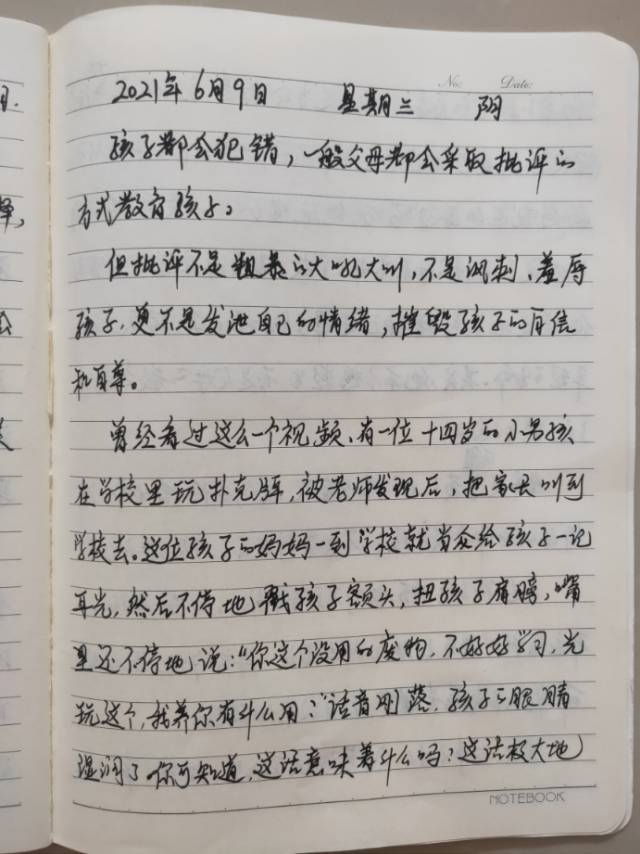 No:
Date:
2021年6月9日 星期三 阴
孩子都会犯错，一般父母都会采取批评的
方式教育孩子。
但批评不是粗暴的大吼大叫，不是讽刺、羞辱
孩子，更不是发泄自己的情绪，摧毁孩子的自信
和自尊。
曾经看过这么一个视频、有一位十四岁的小男孩
在学校里玩扑克牌，被老师发现后，把家长叫到
学校去。这位孩子的妈妈一到学校就当众给孩子一记
耳光，然后不停地戳孩子额头，扭孩子肩膀，嘴
里还不停地说：“你这个没用的废物，不好好学习，光
玩这个，我养你有什么用？”话音刚落，孩子的眼睛
湿润了你可知道，这话意味着什么吗？这话极大地
NOTEBOOK